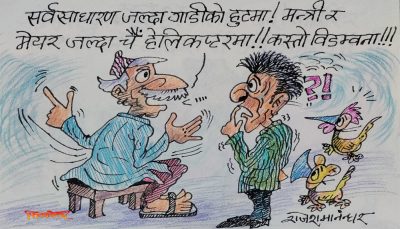 सर्वसाधारण जल्दा गाडीको हुटमा! मन्त्री र
मेयर जल्दा चैं हेलिकप्टरमा!! कस्तो विडम्वना!!!
?!
राजेशमानन्धर